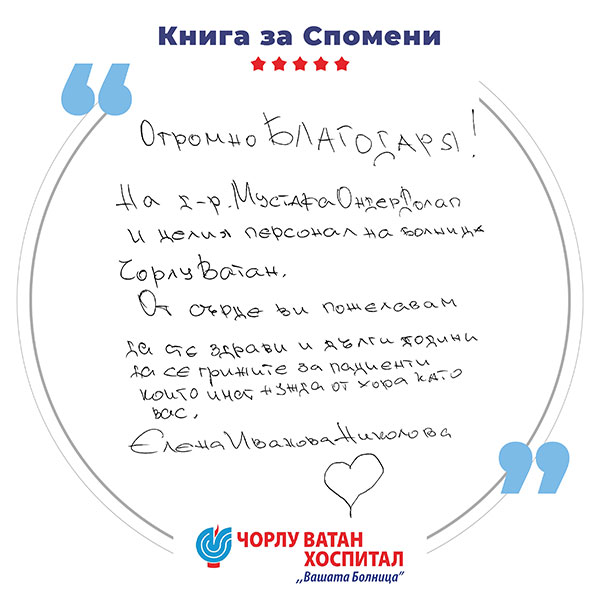 Книга за Спомени
Огромно БЛАГОДАРЯ!
На д-р. Мустафа Ондер Долап
и целия персонал на болница
Чорлу Ватан.
От сърце ви пожелавам
да сте здрави и дълги години
да се грижите за пациенти
които имат нужда от хора като
вас.
Елена Иванова Николова
ЧОРЛУ ВАТАН
ХОСПИТАЛ
,,Вашата Болница"